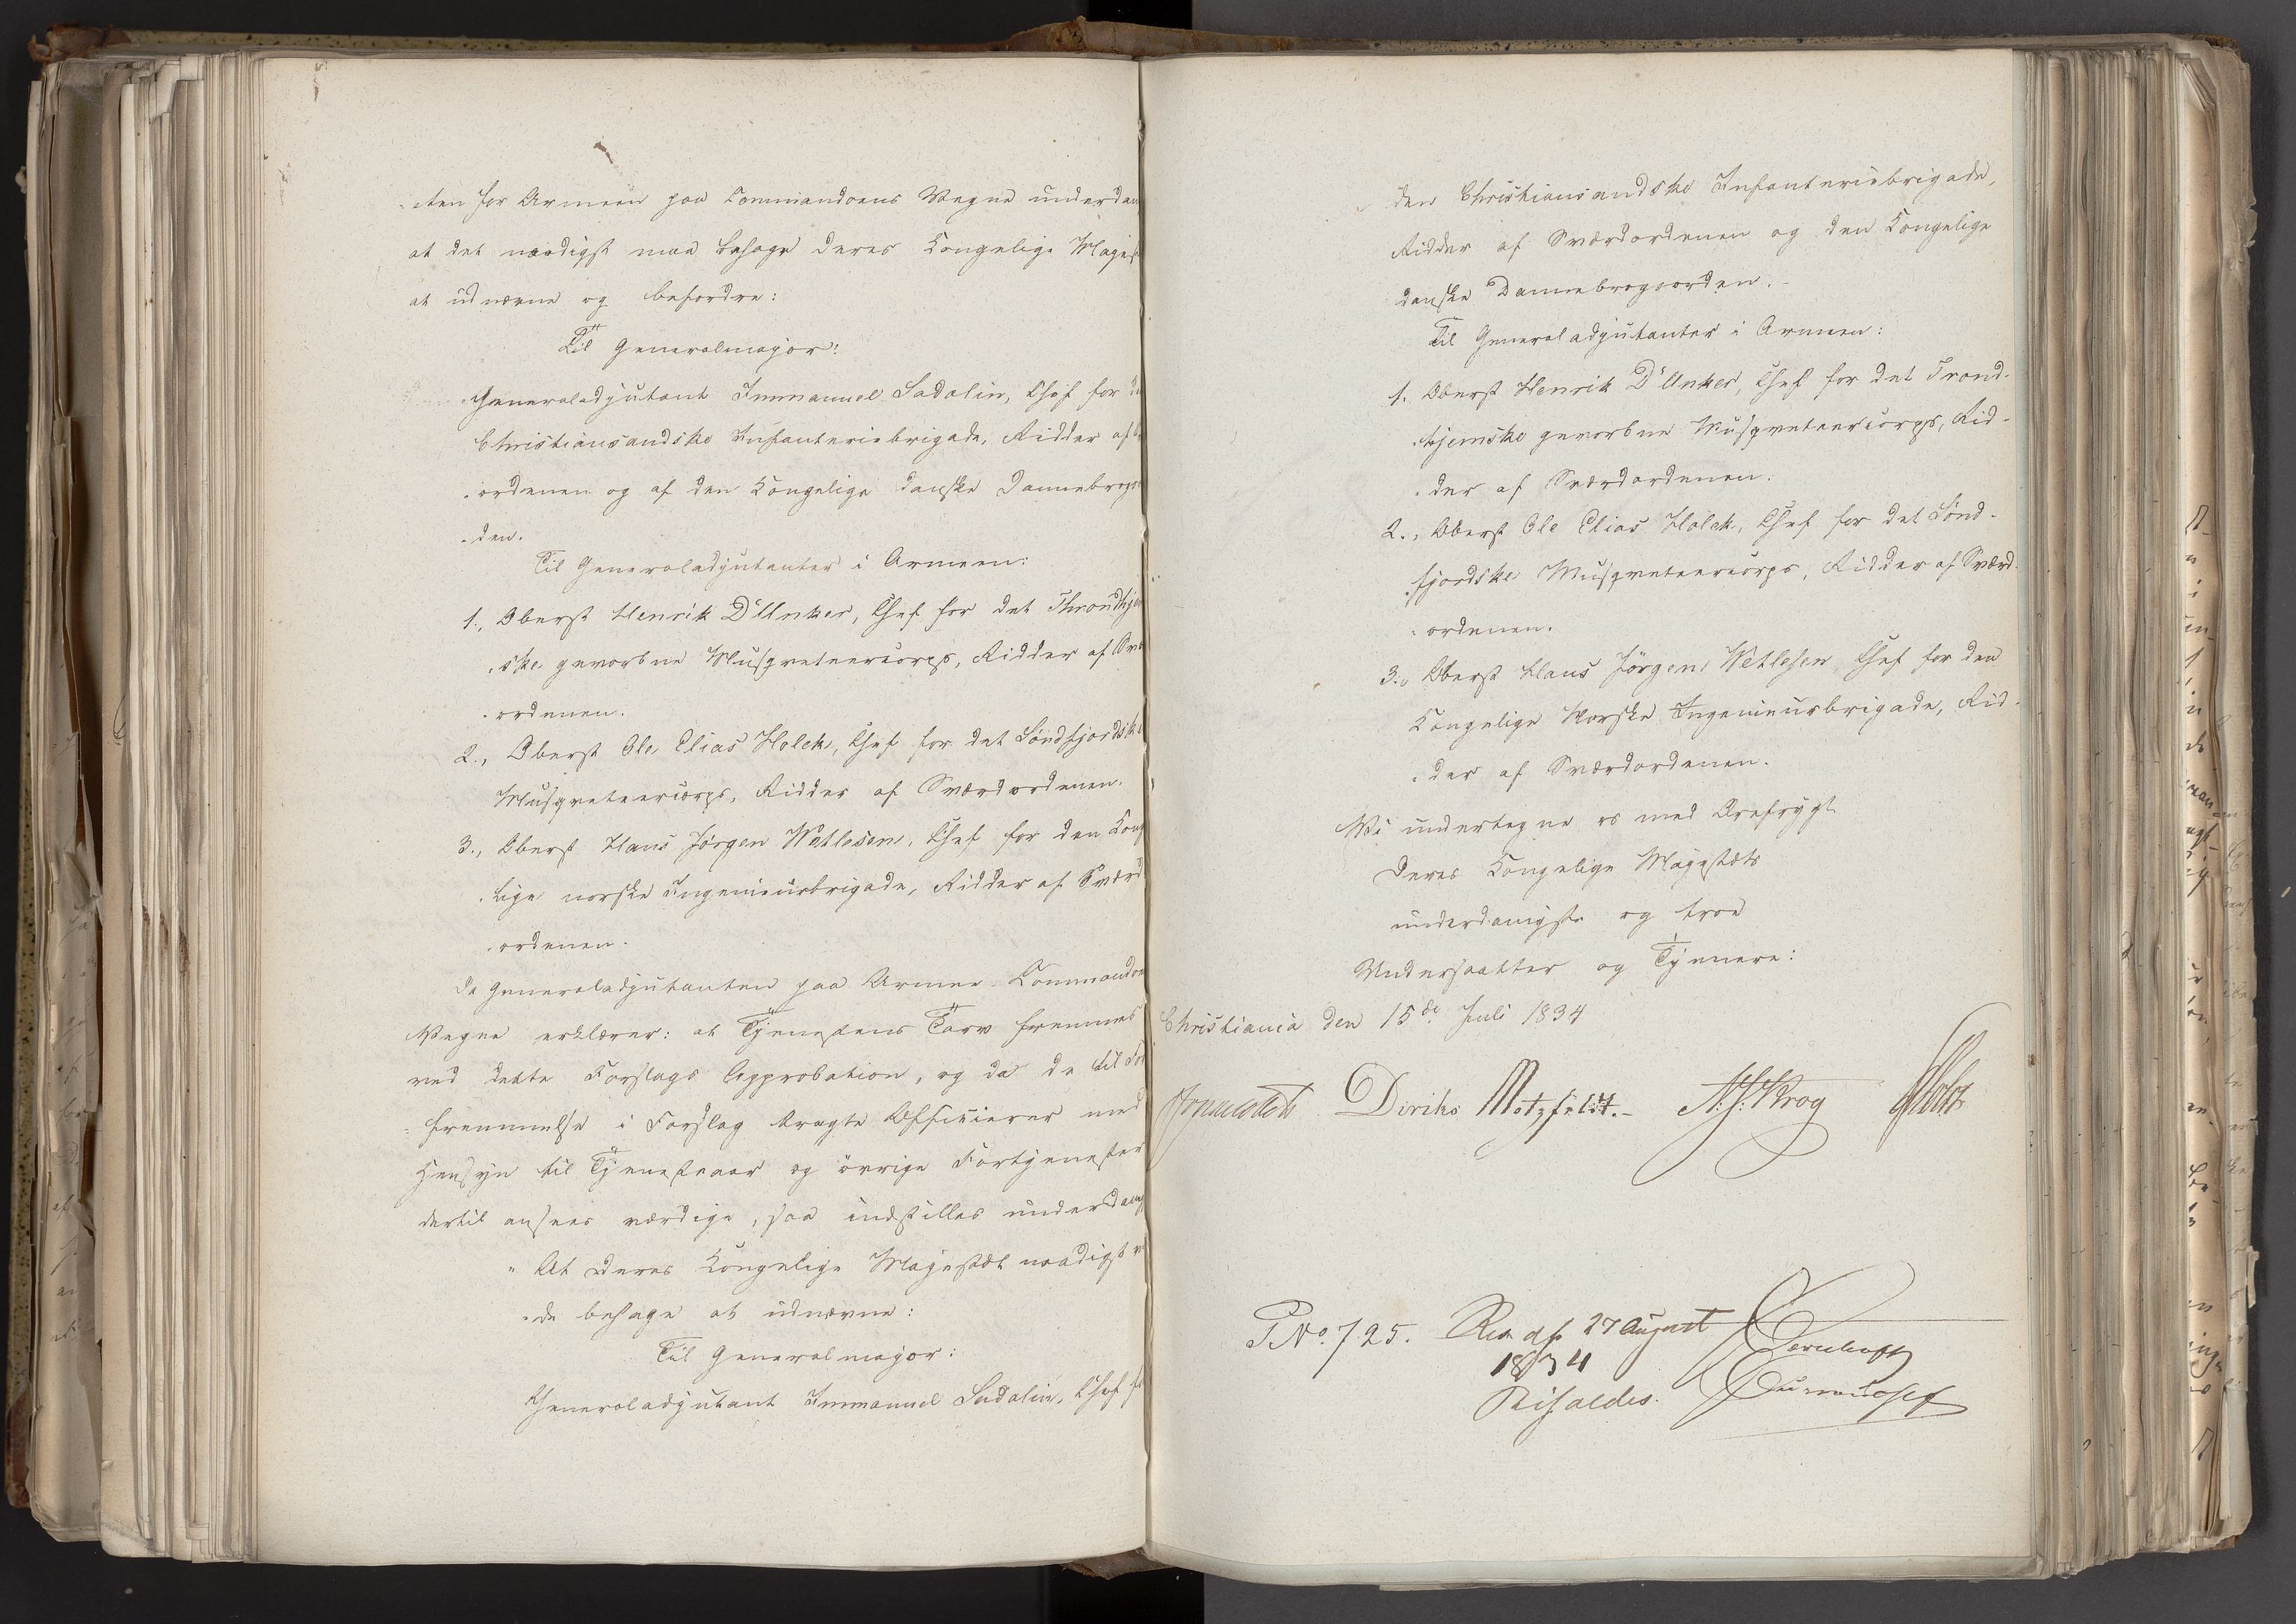 -ten for Armeen paa Commandoens Vegne underdan
at det naadigst maa behage Deres Kongelige Majes
at udnævne og befordre:
Til Generalmajor:
Generaladjutant Immanuel Sadolin, Chef for d
Christiansandske Infanteriebrigade, Ridder af
ordenen og af den Kongelige danske Dannebrogs
-den.
Til Generaladjutanter i Armeen:
1., Oberst Henrik D'Unker, Chef for det Throndhjem
-ske gevorbne Musqveteercorps, Ridder af Svæ
-ordenen.
2., Oberst Ole Elias Holck, Chef for det Søndfjordske
Musqveteercorps, Ridder af Sværdordenen.
3., Oberst Hans Jørgen Wetlesen, Chef for den Kong
-lige norske Ingenieurbrigade, Ridder af Sværd
-ordenen.
Da Generaladjutanten paa Armee-Commandoe
Vegne erklærer: at Tjenestens Tarv fremmes
ved dette Forslags Approbation, og da de til
-fremmelse i Forslag bragte Officierer med
Hensyn til Tjenesteaar og øvrige Fortjenester
dertil ansees værdige, saa indstilles underdanig
"At Deres Kongelige Majestæt naadigst v
-de behage at udnævne:
Til Generalmajor:
Generaladjutant Immanuel Sadolin, Chef fo
den Christiansandske Infanteriebrigade,
Ridder af Sværdordenen og den Kongelige
danske Dannebrogsorden.-
Til Generaladjutanter i Armeen:
1. Oberst Henrik D'Unker, Chef for det Trond-
-hjemske gevorbne Musqveteercorps, Rid-
-der af Sværdordenen.
2., Oberst Ole Elias Holck, Chef for det Sønd-
-fjordske Musqveteercorps, Ridder af Sværd-
-ordenen.
3., Oberst Hans Jørgen Wetlesen Chef for den
Kongelige Norske Ingenieurbrigade, Rid-
-der af Sværdordenen.
Vi undertegne os med Ærefrygt
Deres Kongelige Majestæts
underdanigste og troe
Undersaatter og Tjenere:
Christiania den 15de Juli 1834
Diriks Motzfeldt.- N. J. Krog
P.No. 725. Res. af 27 August
1834
Bifaldes.